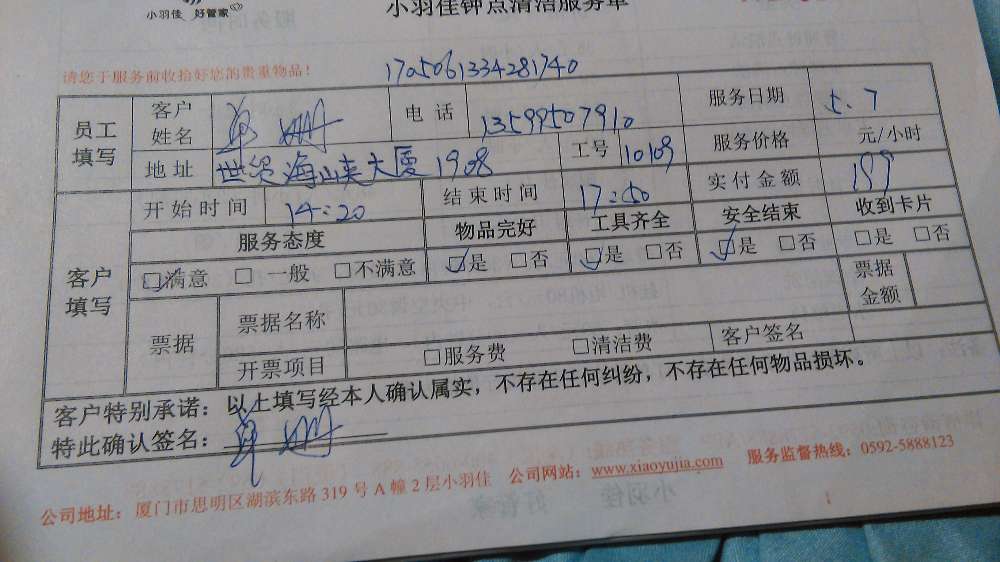 小羽佳 好管家
小羽佳钟点清洁服务单
请您于服务前收拾好您的贵重物品!
1705061334281740
员工填写 客户姓名 电话 13599507910 服务日期 5.7
地址 世贸海峡大厦1908 工号 10109 服务价格 元/小时
客户填写 开始时间 14:20 结束时间 17:50 实付金额 199
服务态度 物品完好 工具齐全 安全结束 收到卡片
☑满意 □一般 □不满意 ☑是 □否 ☑是 □否 ☑是 □否 □是 □否
票据 票据名称 票据金额
开票项目 □服务费 □清洁费 客户签名
客户特别承诺:以上填写经本人确认属实,不存在任何纠纷,不存在任何物品损坏。
特此确认签名:
公司地址:厦门市思明区湖滨东路319号A幢2层小羽佳 公司网站:www.xiaoyujia.com 服务监督热线:0592-5888123